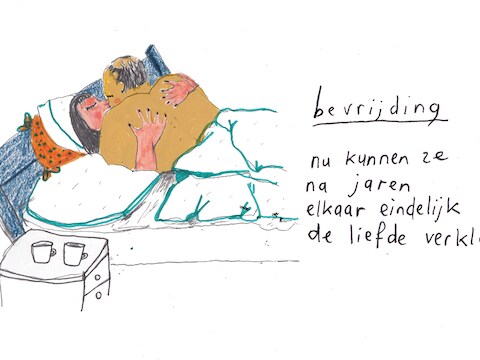 bevrijding
nu kunnen ze
na jaren
elkaar eindelijk
de liefde